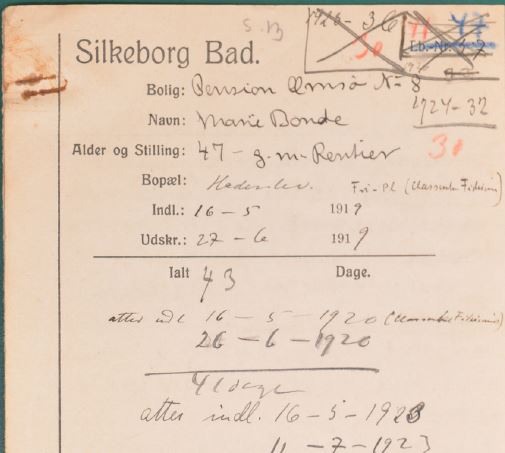 S.B
1926-36
30
Lb. Nr.
Silkeborg Bad.
Bolig: Pension Ørnsø N- 8
1924-32
Navn: Marie Bonde
30
Alder og Stilling: 47 - g. m. Rentier
Bopæl: Haderslev. Fri-Pl (Classenske Fideicom)
Indl.: 16-5 1919
Udskr.: 27-6 1919
Ialt 43 Dage.
atter indl 16-5-1920 (Classenske Fideicomis)
26-6-1920
41 dage
atter indl. 16-5-1923
11-7-1923